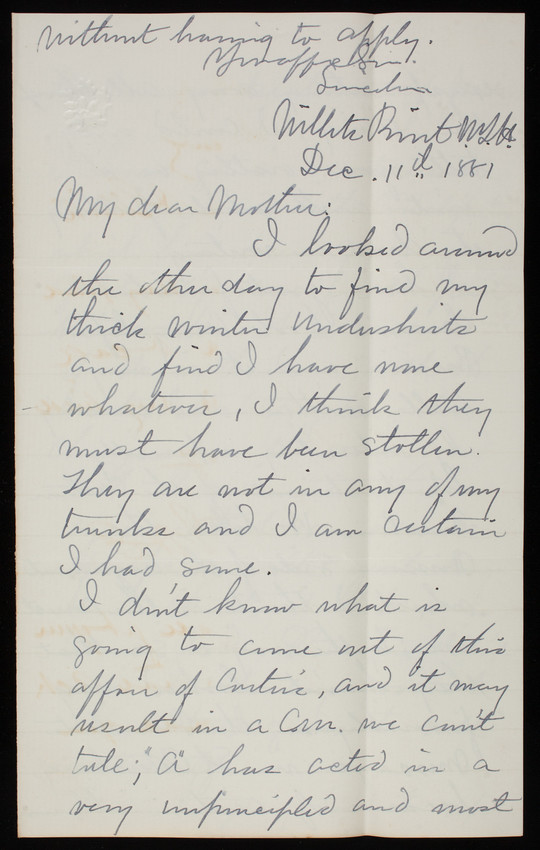 without having to apply.
Your affec Son.
Lincoln
Willets Point N.Y.H.
Dec. 11th 1881
My dear Mother:
I looked around
the other day to find my
thick winter undershirts
and find I have none
whatever, I think they
must have been stollen.
They are not in any of my
trunks and I am certain
I had some.
I don't know what is
going to come out of this
affair of Custis', and it may
result in a Com. we can't
tell; "A" has acted in a
very unprincipled and most